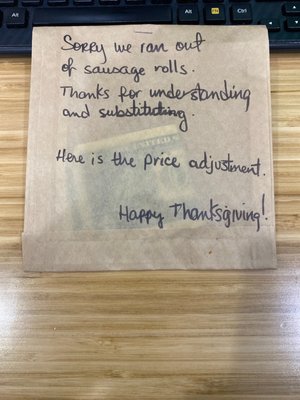 Alt
Alt
Ctrl
Sorry we ran out
of sausage rolls.
Thanks for understanding
and substituting.
Here is the price adjustment.
Happy Thanksgiving!